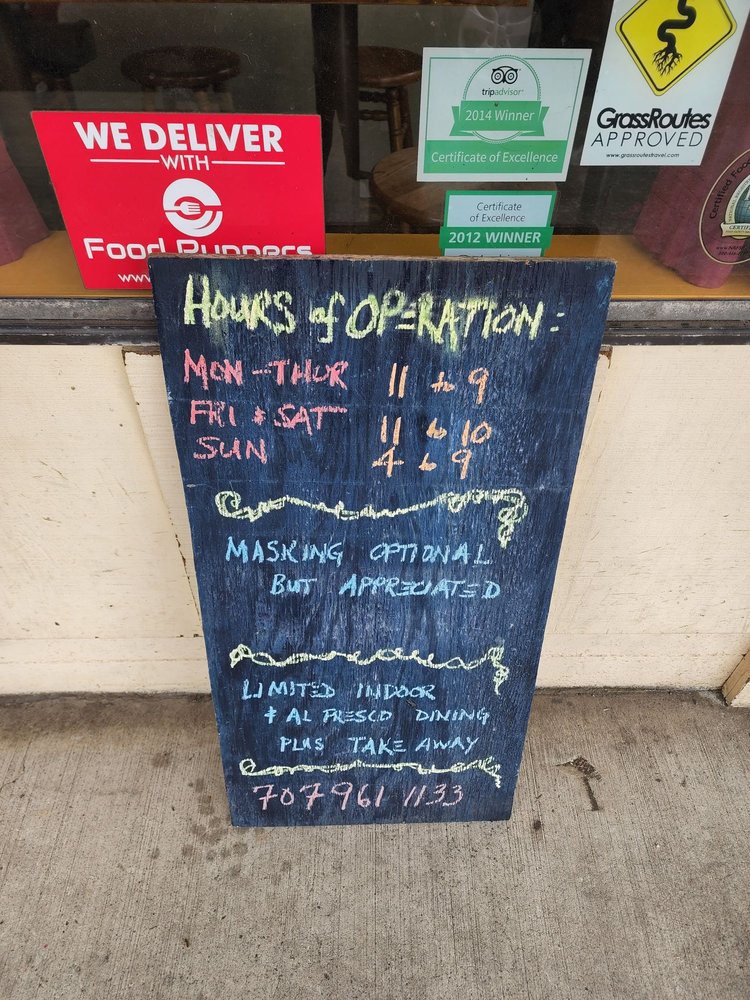 WE DELIVER
WITH
Food Runners
www
tripadvisor
2014 Winner
Certificate of Excellence
Certificate
of Excellence
2012 WINNER
GrassRoutes
APPROVED
www.grassroutestravel.com
HOURS of OPERATION:
MON-THUR 11 to 9
FRI & SAT 11 to 10
SUN 4 to 9
MASKING OPTIONAL
BUT APPRECIATED
LIMITED INDOOR
& AL FRESCO DINING
PLUS TAKE AWAY
707 961 1133